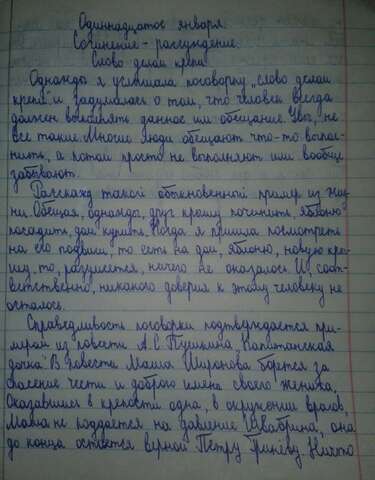 Одиннадцатое января.
Сочинение - рассуждение
Слово делом крепи.
Однажды я услышала поговорку „слово делом
крепи" и задумалась о том, что человек всегда
должен выполнять данное им обещание. Увы, не
все такие. Многие люди обещают что-то выпол-
нить, а потом просто не выполняют или вообще
забывают.
Расскажу такой обыкновенный пример из жиз-
ни. Обещал, однажды, друг крышу починить, яблоню
посадить, дом купить. Когда я пришла посмотреть
на его подвиги, то есть на дом, яблоню, новую кры-
шу, то, разумеется, ничего не оказалось. И, соот-
ветственно, никакого доверия к этому человеку не
осталось.
Справедливость поговорки подтверждается при-
мером из повести А.С. Пушкина „Капитанская
дочка". В повести Маша Миронова борется за
спасение чести и доброго имени своего жениха.
Оказавшись в крепости одна, в окружении врагов,
Маша не поддается на давление Швабрина, она
до конца остается верной Петру Гриневу. Никто